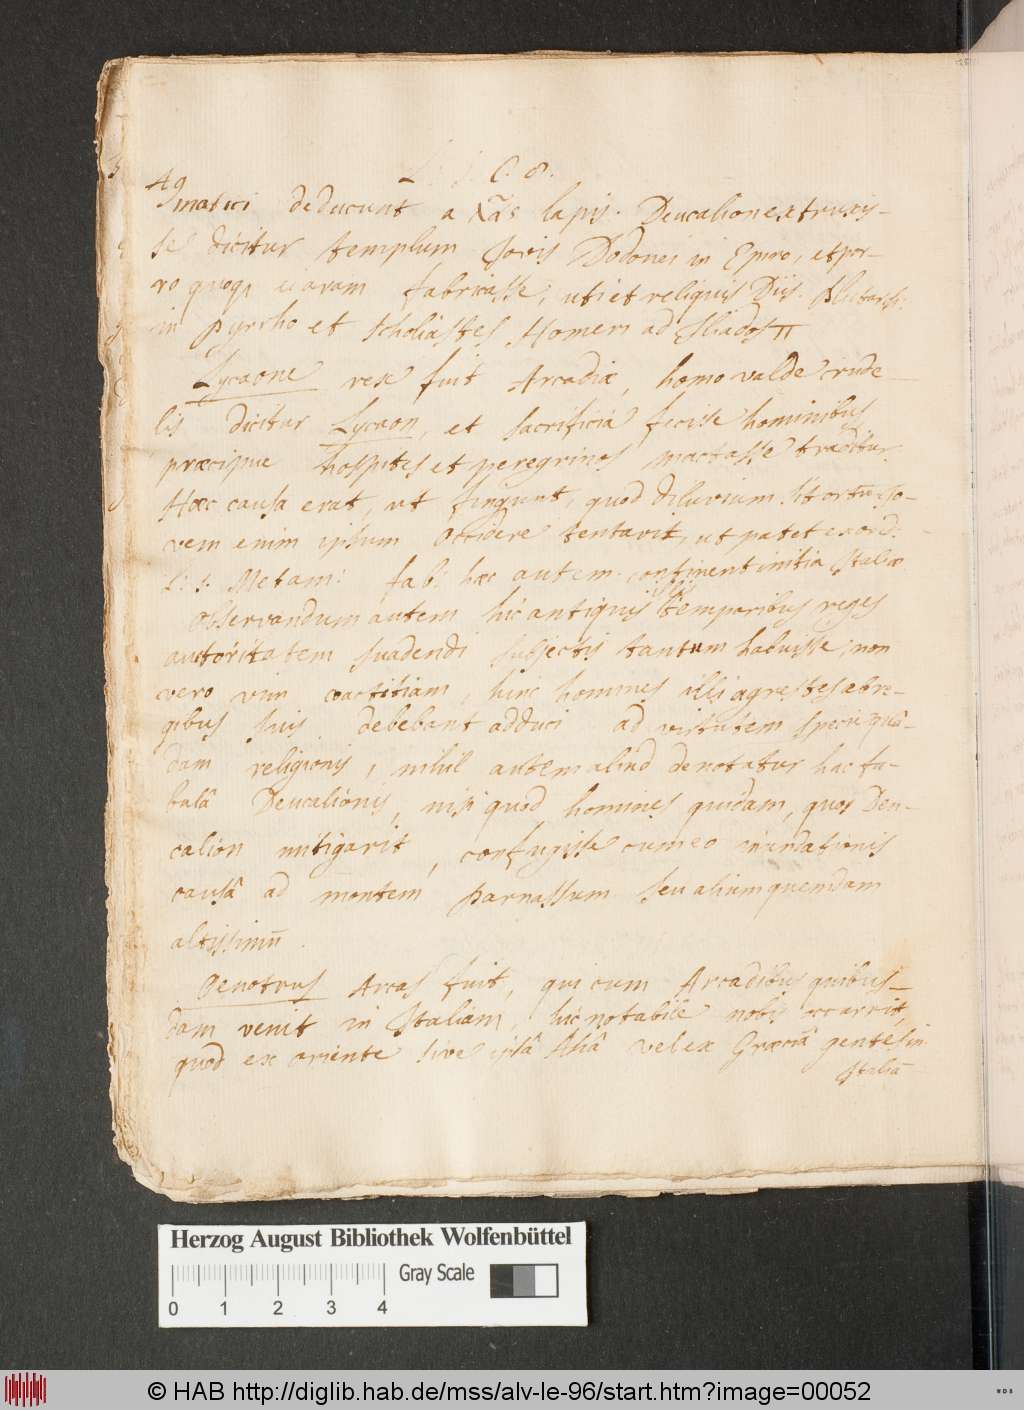 49
L. I. C. 8.
matici deducunt a λᾶς lapis. Deucalion extruxis-
se dicitur templum Jovis Dodonei in Epiro, et por-
ro quoq aram fabricasse, uti et reliquis Diis. Plutarch:
in Pyrrho et Scholiastes Homeri ad Iliados π
Lycaone rex fuit Arcadiæ, homo valde crude-
lis dicitur Lycaon, et sacrificia fecisse hominibus
præcipue hospites et peregrinos mactasse traditur.
Hæc causa erat, ut fingunt, quod diluvium sit ortum, Jo-
vem enim ipsum occidere tentavit, ut patet ex Ovid:
L: 1. Metam: fab: hæc autem continent initia Italiæ
Observandum autem hic antiquis istis temporibus reges
autoritatem svadendi subjectis tantum habuisse, non
vero vim coactitiam, hinc homines illi agrestes a bre-
gibus suis debebant adduci ad virtutem specie quâ-
dam religionis, nihil autem aliud denotatur hac fa-
bulâ Deucalionis, nisi quod homines quidam, quos Deu-
calion mitigarit, confugisse cum eo inundationis
causâ ad montem Parnassum seu alium quendam
altissimū.
Oenotrus Arcas fuit, qui cum Arcadibus quibus-
dam venit in Italiam, hic notabile nobis occurrit,
quod ex oriente sive ipsâ Asiâ vel ex Græciâ gentes in
Italiā
Herzog August Bibliothek Wolfenbüttel
Gray Scale
0 1 2 3 4
© HAB http://diglib.hab.de/mss/alv-le-96/start.htm?image=00052